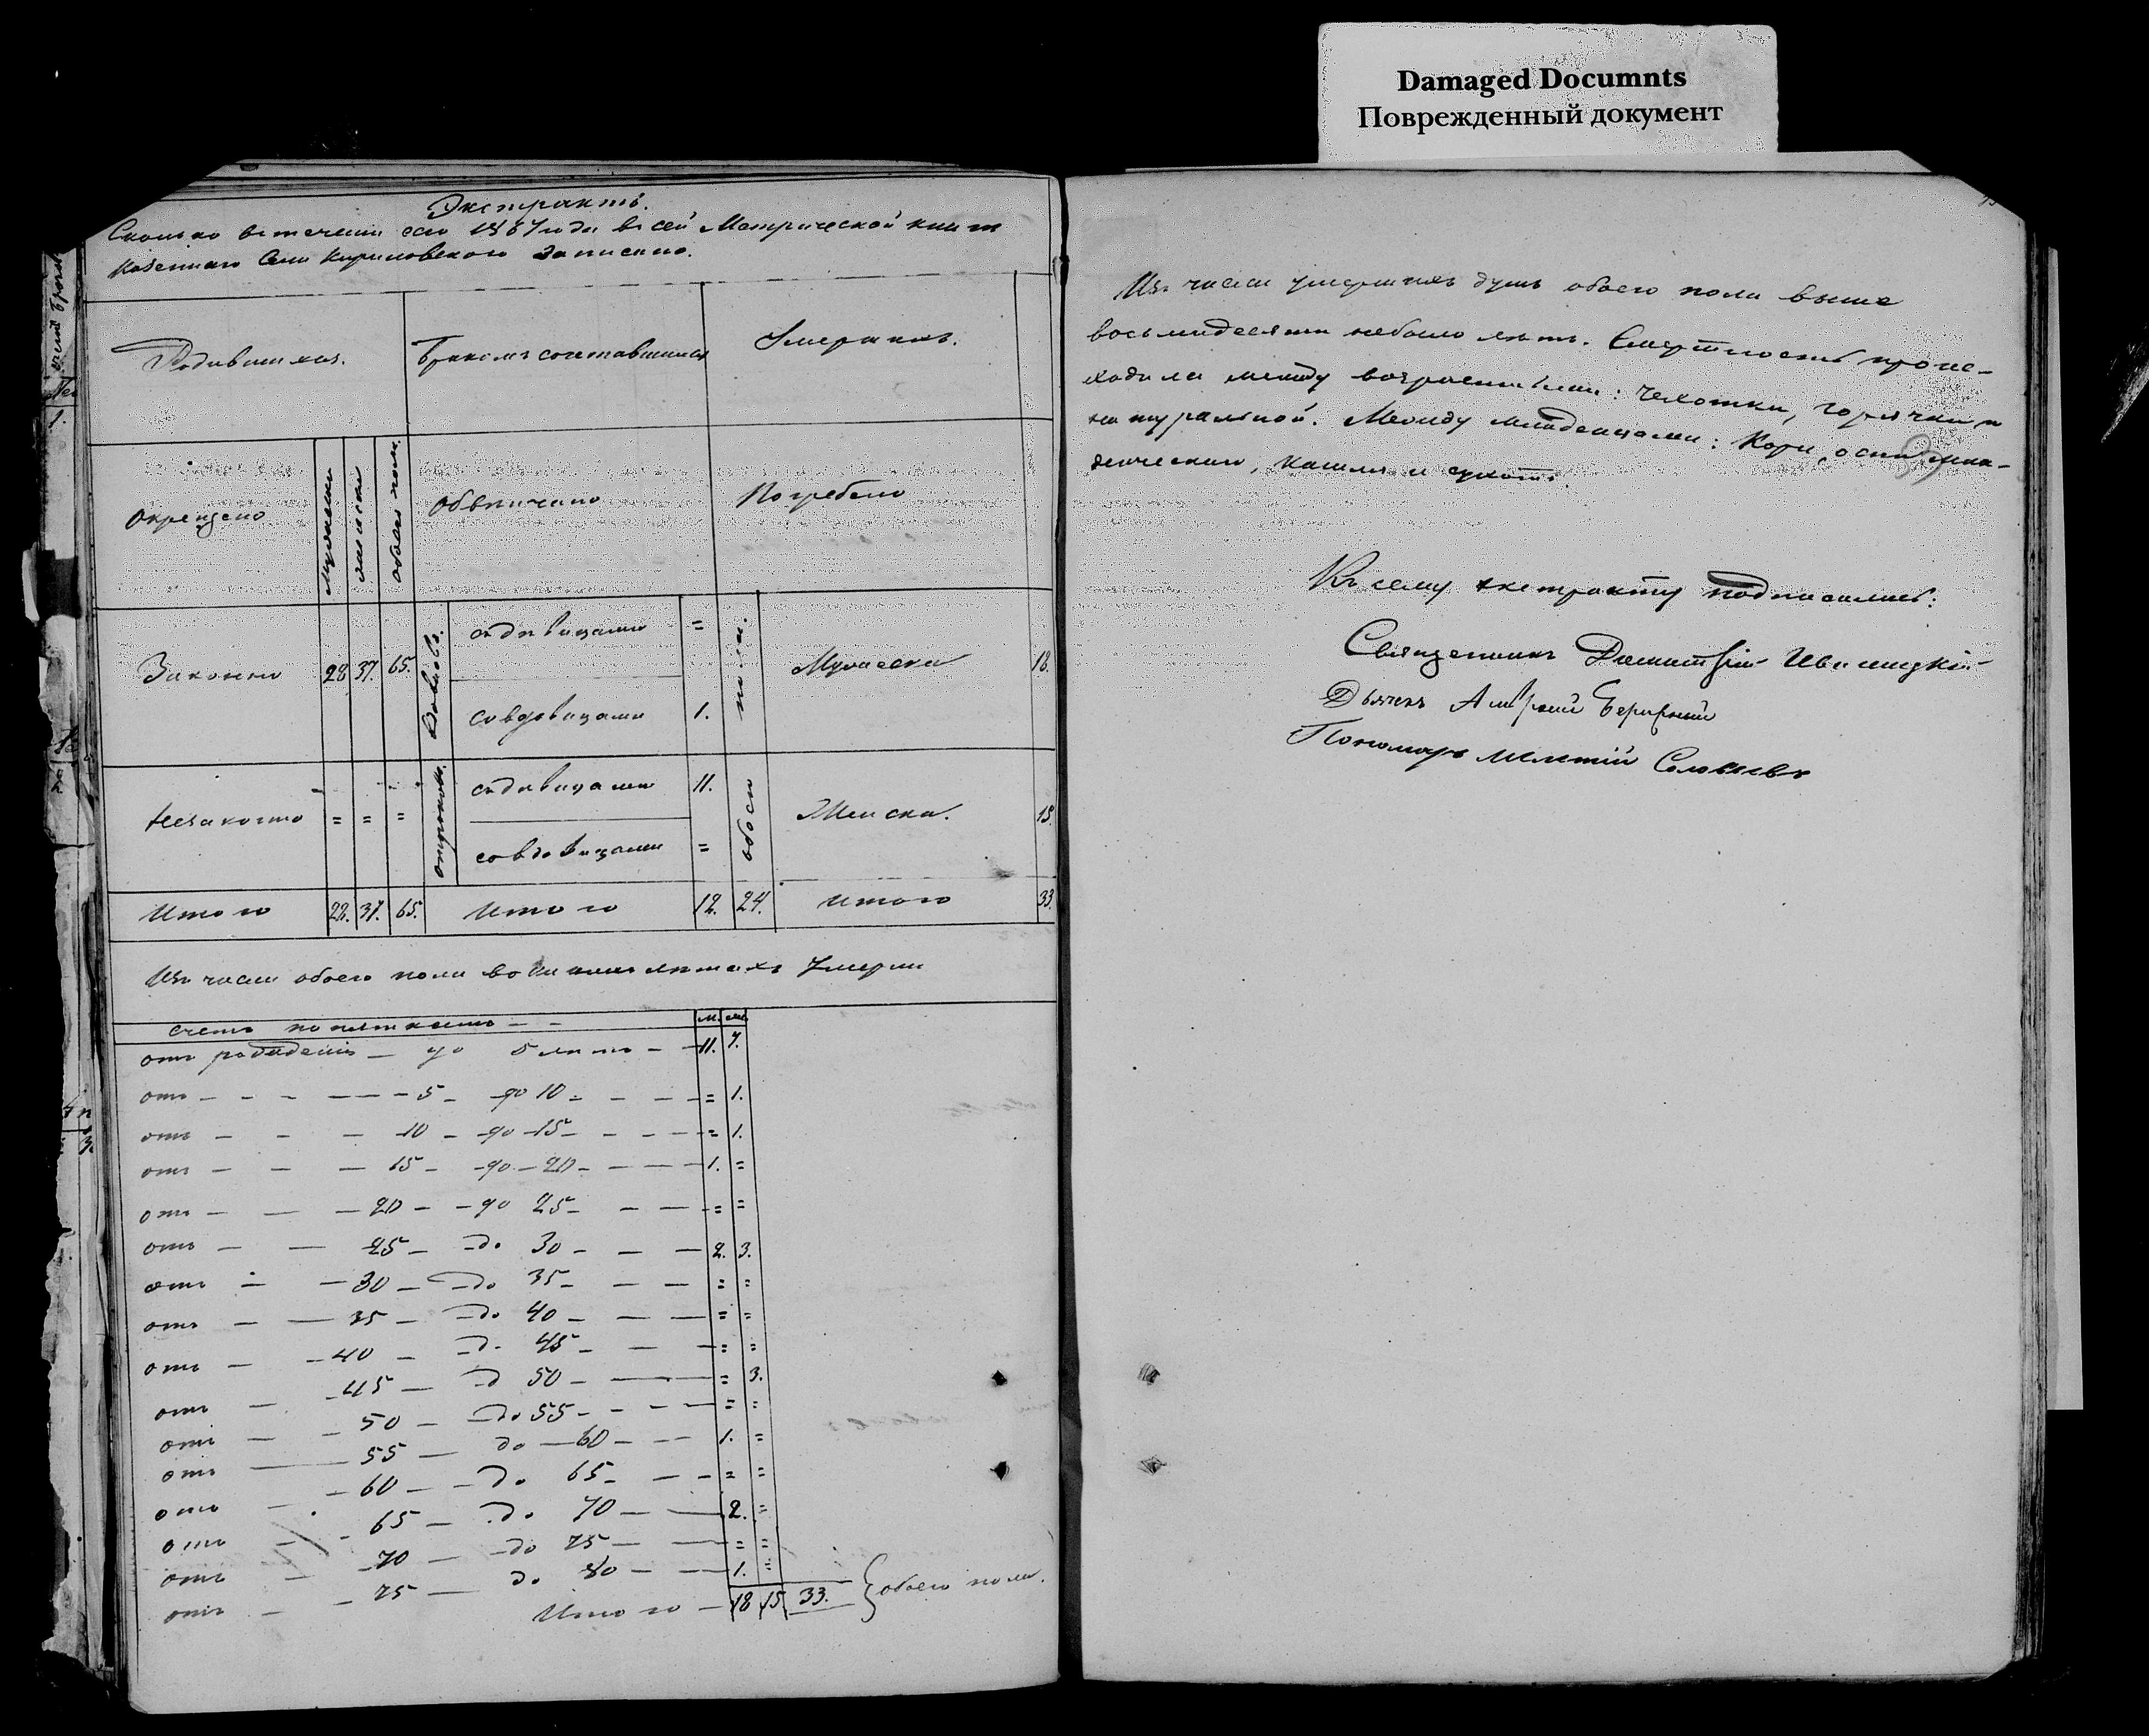 Damaged Documnts
Поврежденный документ
Экстрактъ.
Сколько въ течении сего 1867 года въ сей Метрической книги
казеннаго села Кириловскаго записано.
Родившихся.
Бракомъ сочетавшихся
Умершихъ.
окрещено
мужеска
женска
обоего пола
обвенчано
погребено
Законно 28 37. 65.
Вдовцовъ.
съ девицами =
со вдовицами 1.
пола.
Мужеска 18.
Незаконно = = =
отроковъ.
съ девицами 11.
со вдовицами =
обоего
Женска. 15.
Итого 28. 37. 65. Итого 12. 24. итого 33.
Изъ числа обоего пола въ лѣтахъ Умерли
счетъ по пяткамъ - - м. ж.
отъ рождения — до 5 лѣтъ - 11. 7.
отъ - - - - - 5 - до 10 - - - = 1.
отъ - - - 10 - до 15 - - - = 1.
отъ - - - 15 - до 20 - - - 1. =
отъ - - - 20 - до 25 - - - = =
отъ - - 25 - до 30 - - - 2. 3.
отъ - - 30 - до 35 - - - = =
отъ - - 35 - до 40 - - - = =
отъ - - 40 - до 45 - - - = =
отъ - - 45 - до 50 - - = 3.
отъ - - 50 - до 55 - - - = =
отъ - 55 - до 60 - - - 1. =
отъ - - 60 - до 65 - - - = =
отъ - - 65 - до 70 - - 2. =
отъ - - 70 - до 75 - - = =
отъ - - 75 - до 80 - - 1. =
Итого - 18 15 33. обоего пола.
Изъ числа умершихъ душъ обоего пола выше
восьмидесяти небыло лѣтъ. Смертность проис-
ходила между возрастными: чехотки, горячки и
натуральной. Между младенцами: Кори, оспы, мла-
денческаго, кашля и
Къ сему экстракту подписались:
Священникъ
Дьячекъ
Пономарь Мелетий Соловьевъ